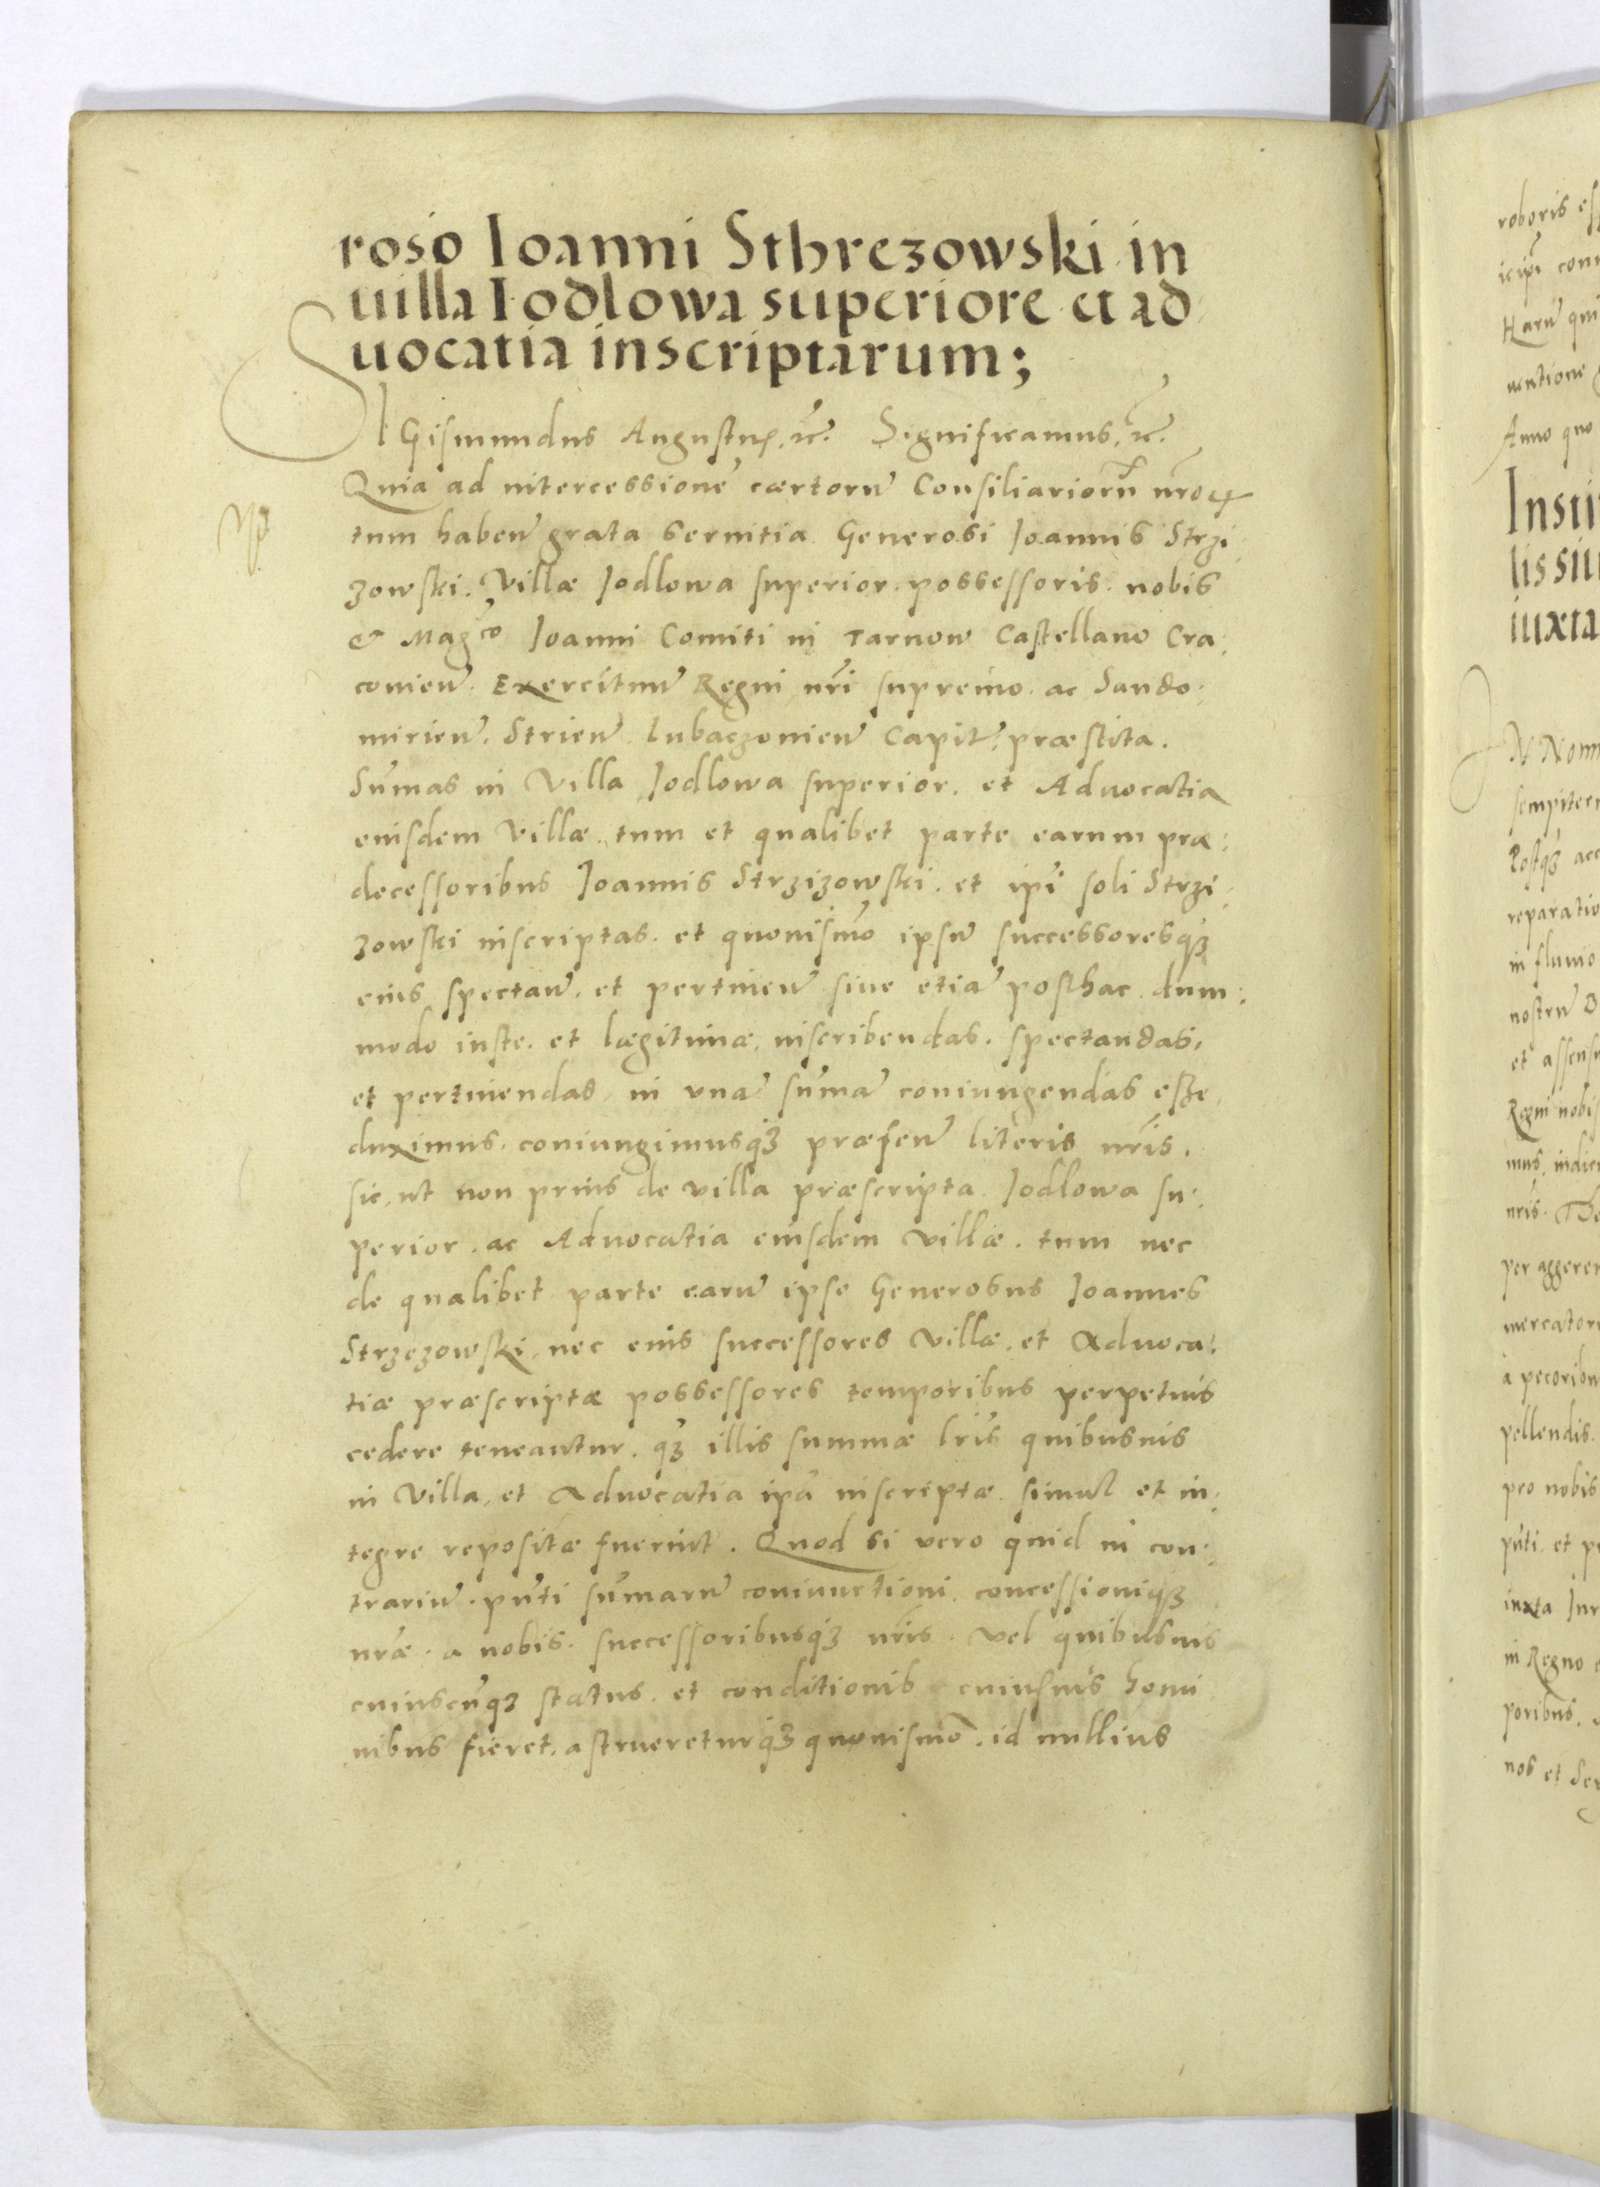 roso Ioanni Sthrezowski in
uilla Iodlowa superiore et ad
uocatia inscriptarum;
SIGismundus Augustus, etc. Significamus, etc.
Quia ad intercessionẽ cærtorũ Consiliariorũ nrõꝝ
tum habeñ grata seruitia Generosi Joannis Strzi
zowski. Villæ Jodlowa superior. possessoris. nobis
& Mag^co Joanni Comiti in Tarnow Castellano Cra:
couieñ. Exercituũ Regni nrĩ supremo. ac Sando:
mirieñ. Strieñ. Lubaczouieñ Capit: præstita.
Sum̃as in Villa Jodlowa superior. et Aduocatia
eiusdem Villæ. tum et qualibet parte earum præ:
decessoribus Joannis Strzizowski. et ipĩ soli Strzi:
zowski inscriptas. et quouismõ ipsũ successoresqꝫ
eius spectañ. et pertineñ siue etiã posthac dum:
modo iuste. et lægitimæ, inscribendas. spectandas,
et pertinendas, in vnã sum̃ã coniungendas esse
duximus. coniungimusqꝫ præseñ literis nrĩs,
sic, ut non prius de villa præscripta Jodlowa su:
perior. ac Aduocatia eiusdem Villæ. tum nec
de qualibet parte earũ ipse Generosus Joannes
Strzezowski, nec eius successores Villæ. et Aduoca:
tiæ præscriptæ possessores temporibus perpetuis
cedere teneantur. qꝫ illis summæ lrĩs quibusuis
in Villa, et Aduocatia ipã inscriptæ simul et in:
tegre repositæ fuerint. Quod si vero quid in con:
trariũ. pñti sum̃arũ coniunctioni. concessioniqꝫ
nrãe. a nobis. successoribusqꝫ nrĩs. vel quibusuis
cuiuscũqꝫ status. et conditionis cuiusuis homi
nibus fieret, astruereturqꝫ quouismõ. id nullius
roboris
Harũ qui
Anno quo
Insti
lissi
iuxta
IN Nom
sempiter
Postqꝫ acc
reparatio
in fluuio
nostrũ
et assensu
Regni nobis
mus, indic
nrĩs.
per aggerem
mercator
à pecorib
pellendis.
pro nobis
pñti. et p
iuxta Jur
in Regno
poribus,
nos et Se